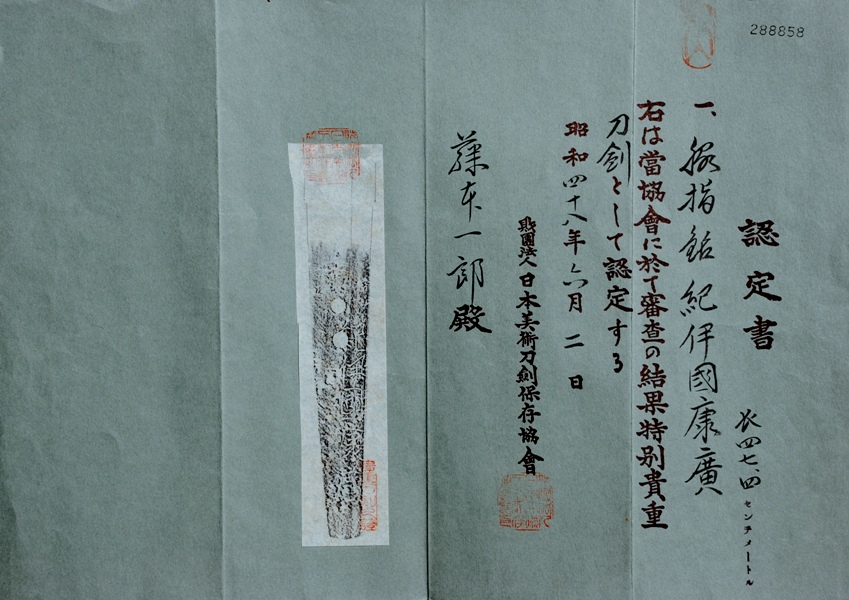 288858
認定書
長四七、四センチメートル
一、脇指 銘 紀伊國康廣
右は當協會に於て審査の結果特别貴重
刀劍として認定する
昭和四十八年六月二日
財團法人日本美術刀劍保存協會
藤本一郎殿